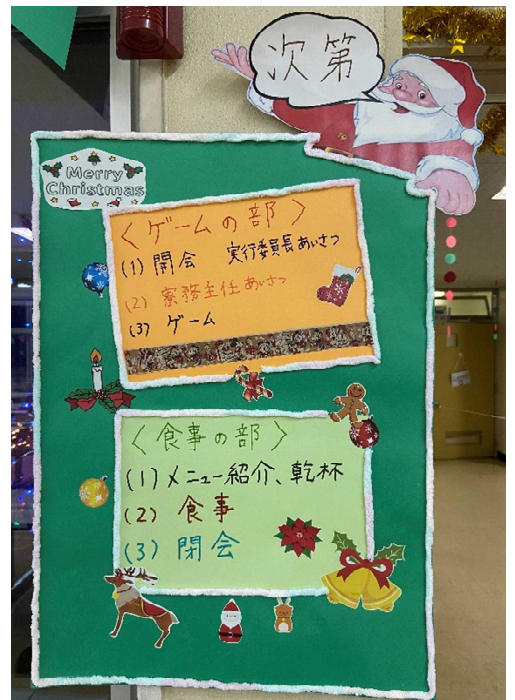 次第
Merry
Christmas
＜ゲームの部＞
(1) 開会 実行委員長あいさつ
(2) 寮務主任あいさつ
(3) ゲーム
＜食事の部＞
(1) メニュー紹介、乾杯
(2) 食事
(3) 閉会